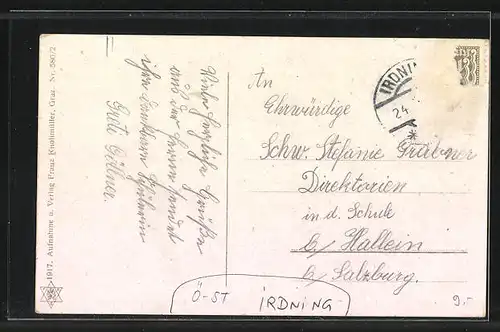 1917. Aufnahme u. Verlag Franz Knollmüller, Graz. Nr. 580/2
Viele herzliche Grüße
aus der Ferne sendet
ihre dankbare Schülerin
Grete Göllner.
IRDNI
24
An
Ehrwürdige
Schw. Stefanie Grubner
Direktorien
in d. Schule
b/ Hallein
b/ Salzburg.
Ö-ST IRDNING
9.-